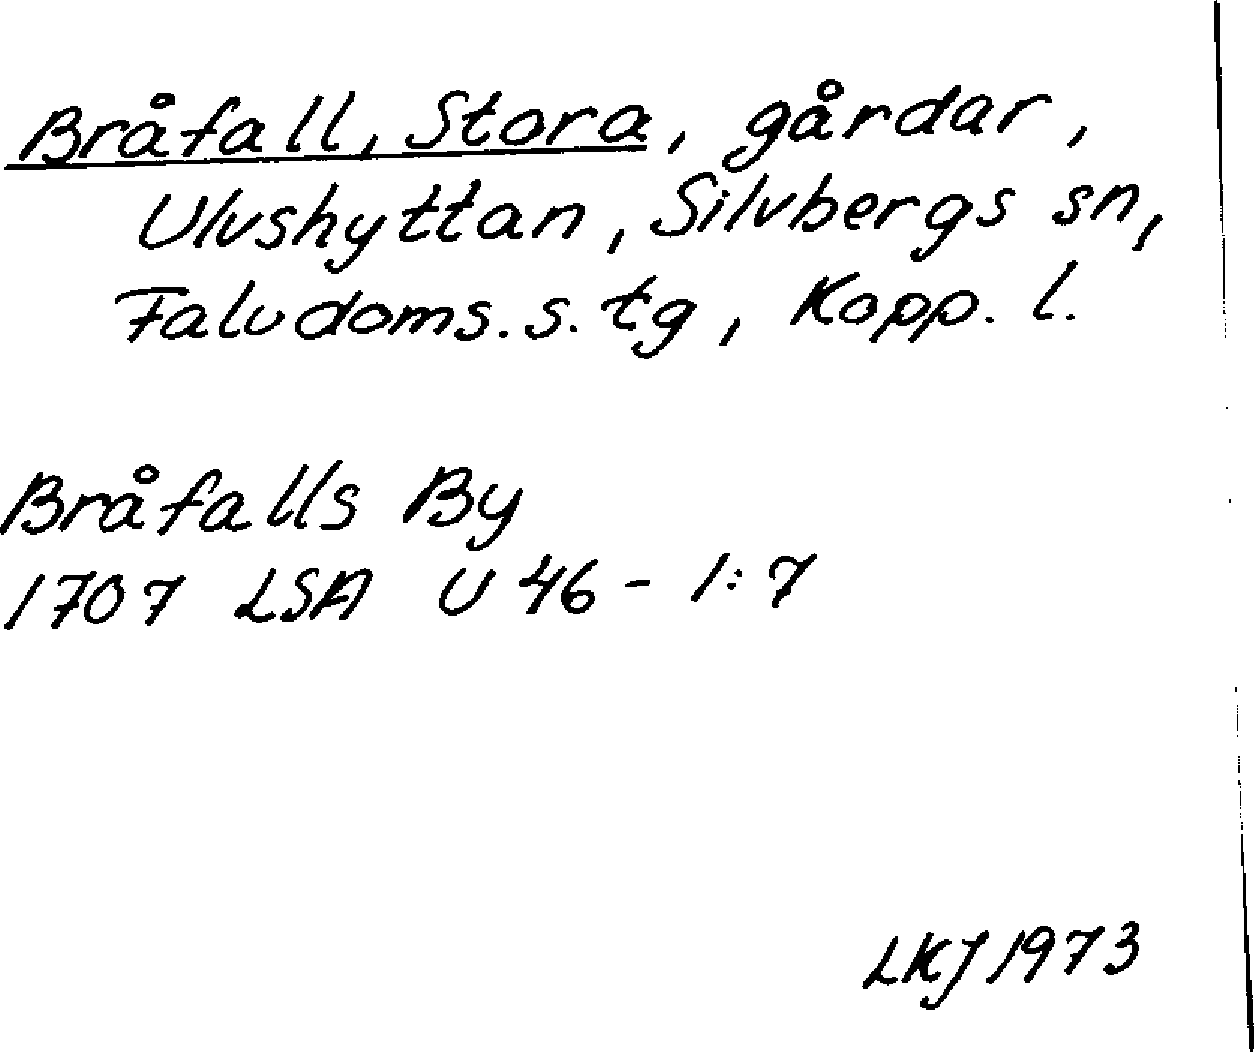 Bråfall, Stora, gårdar,
Ulvshyttan, Silvbergs sn,
Faludoms. s. tg, Kopp. l.
Bråfalls By
1707 LSA U 46 - 1:7
LKJ 1973